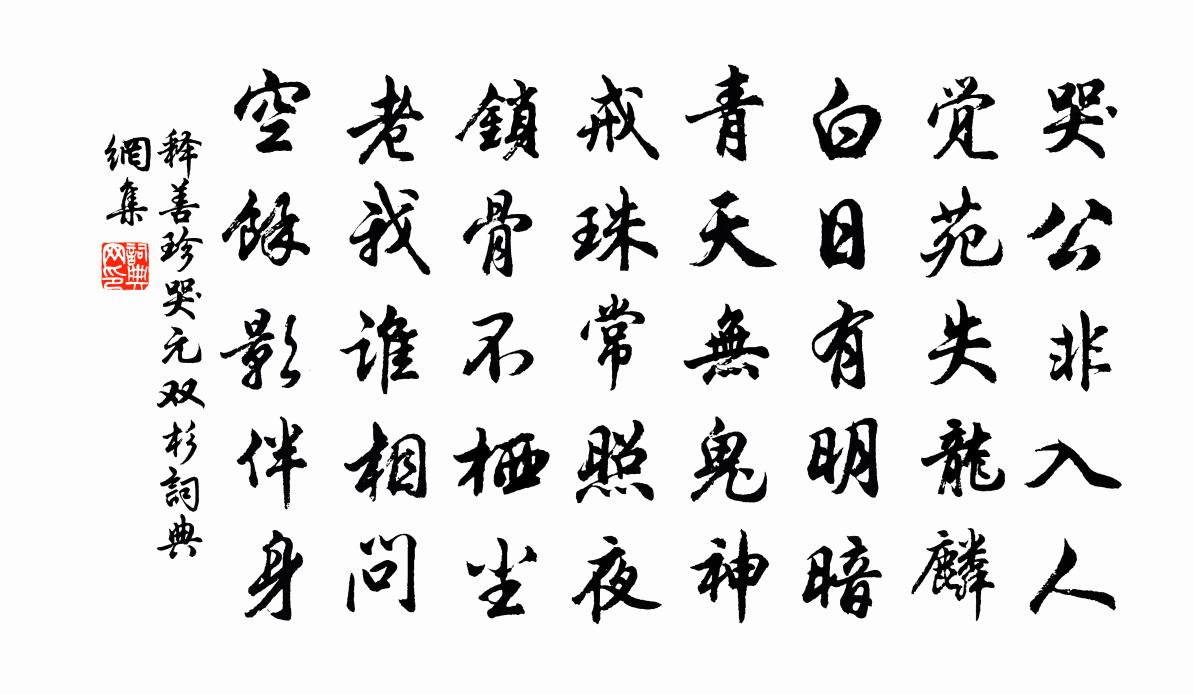 哭公非入人
覚苑失龍麟
白日有明暗
青天無鬼神
戒珠常照夜
鎖骨不栖尘
老我谁相问
空餘影伴身
释善珍哭元双杉詞典
網集
詞典
网印